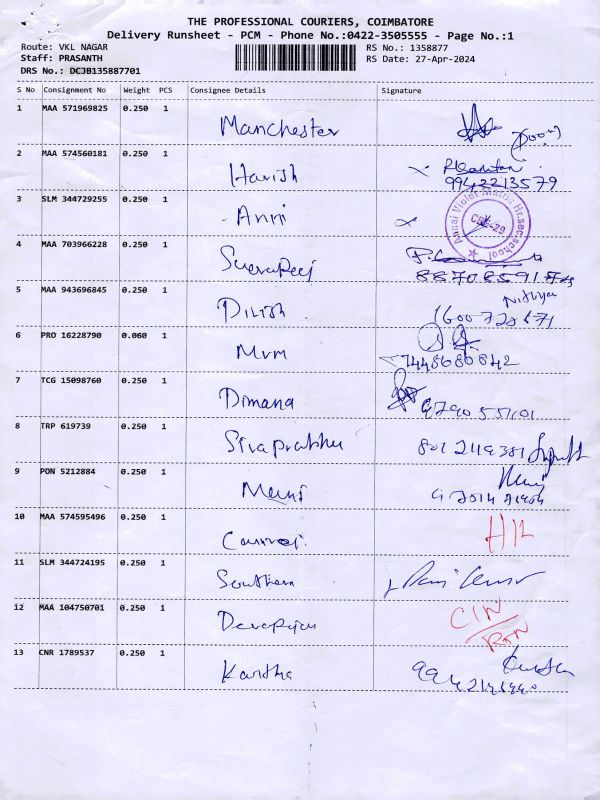 THE PROFESSIONAL COURIERS, COIMBATORE
Delivery Runsheet - PCM - Phone No.:0422-3505555 - Page No.:1
Route: VKL NAGAR RS No.: 1358877
Staff: PRASANTH RS Date: 27-Apr-2024
DRS No.: DCJB135887701
S No Consignment No Weight PCS Consignee Details Signature
1 MAA 571969825 0.250 1 Manchester
2 MAA 574560181 0.250 1 Harish 9942213579
3 SLM 344729255 0.250 1 Annai
Annai Violet Matric Hr.sec.school CBE-29
4 MAA 703966228 0.250 1
5 MAA 943696845 0.250 1 Dilish Nithya
6 PRO 16228790 0.060 1 Mvm 7448680842
7 TCG 15098760 0.250 1 Dimana
8 TRP 619739 0.250 1 Sivaprabhu
9 PON 5212884 0.250 1 Mani
10 MAA 574595496 0.250 1
11 SLM 344724195 0.250 1 Southern
12 MAA 104750701 0.250 1 CIN
13 CNR 1789537 0.250 1 Kartha